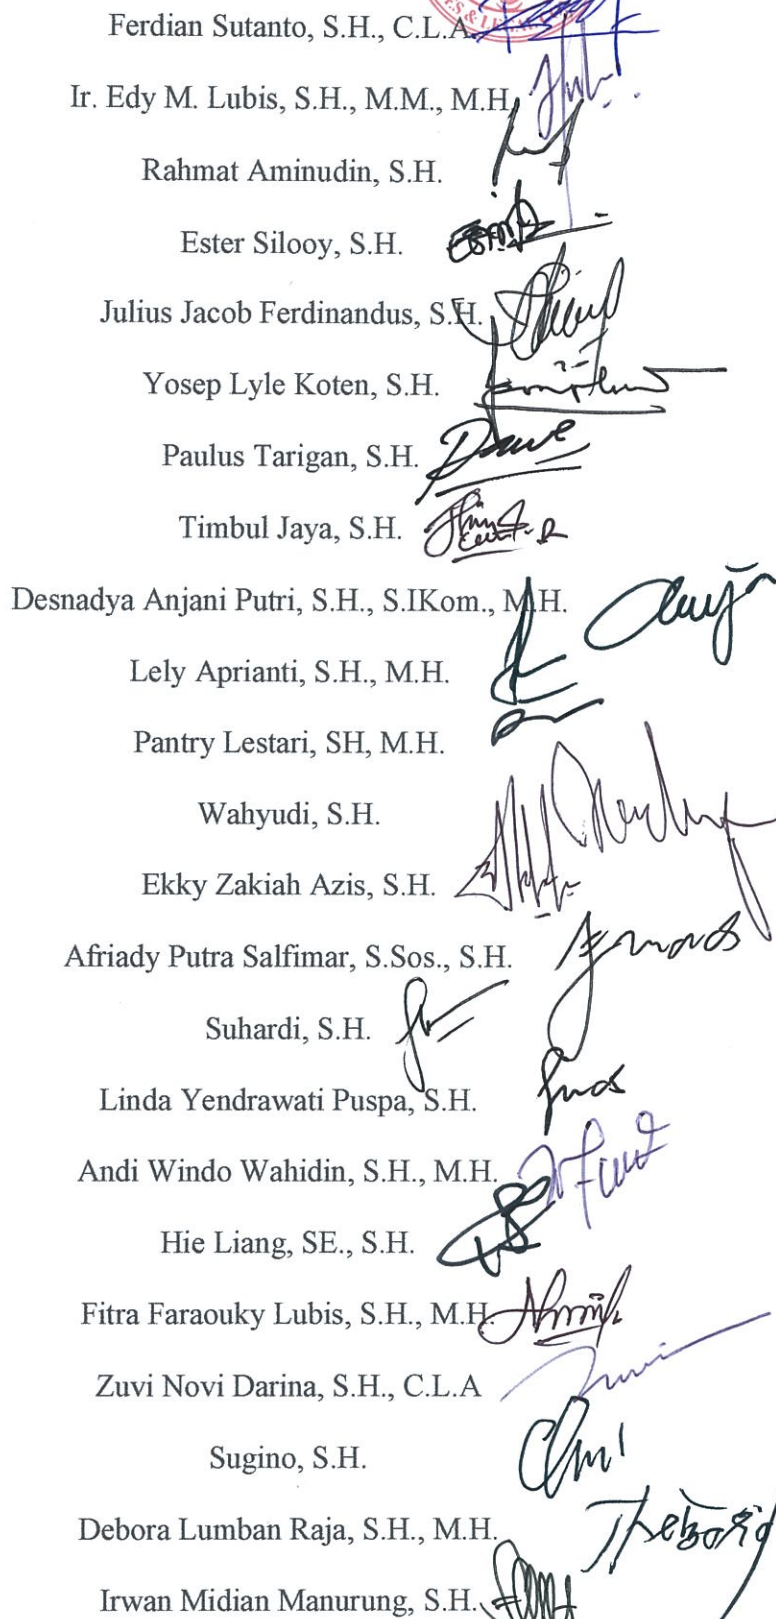 Ferdian Sutanto, S.H., C.L.A.
Ir. Edy M. Lubis, S.H., M.M., M.H.
Rahmat Aminudin, S.H.
Ester Silooy, S.H.
Julius Jacob Ferdinandus, S.H.
Yosep Lyle Koten, S.H.
Paulus Tarigan, S.H.
Timbul Jaya, S.H.
Desnadya Anjani Putri, S.H., S.IKom., M.H.
Lely Aprianti, S.H., M.H.
Pantry Lestari, SH, M.H.
Wahyudi, S.H.
Ekky Zakiah Azis, S.H.
Afriady Putra Salfimar, S.Sos., S.H.
Suhardi, S.H.
Linda Yendrawati Puspa, S.H.
Andi Windo Wahidin, S.H., M.H.
Hie Liang, SE., S.H.
Fitra Faraouky Lubis, S.H., M.H.
Zuvi Novi Darina, S.H., C.L.A
Sugino, S.H.
Debora Lumban Raja, S.H., M.H.
Irwan Midian Manurung, S.H.